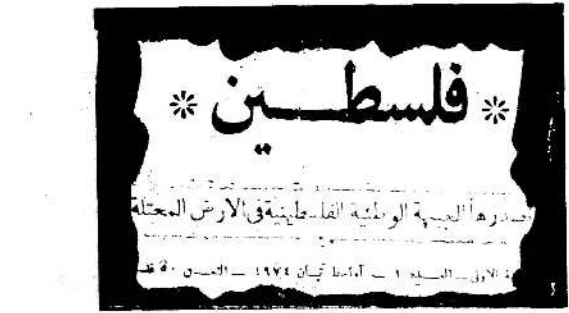 * فلسطين *
تصدرها الجبهة الوطنية الفلسطينية في الارض المحتلة
الاولى ــ العدد ١ ــ أواسط نيسان ١٩٧٤ ــ الثمن ٥٠